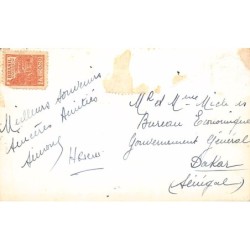 Meilleurs Souvenirs
Sincères Amitiés
Simone
Mr et Mme
Bureau Economique
Gouvernement Général
Dakar
(Sénégal)